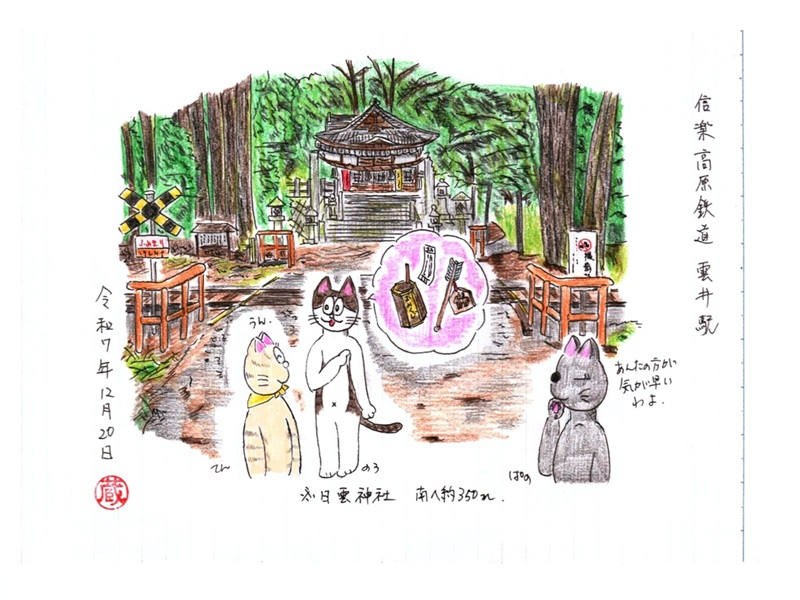 信楽高原鉄道 雲井駅
ふみきり
うん.
あんたの方がい
気が早い
わよ.
てん
のう
ぱの
日雲神社 南へ約350m.
令和7年12月20日
蔵